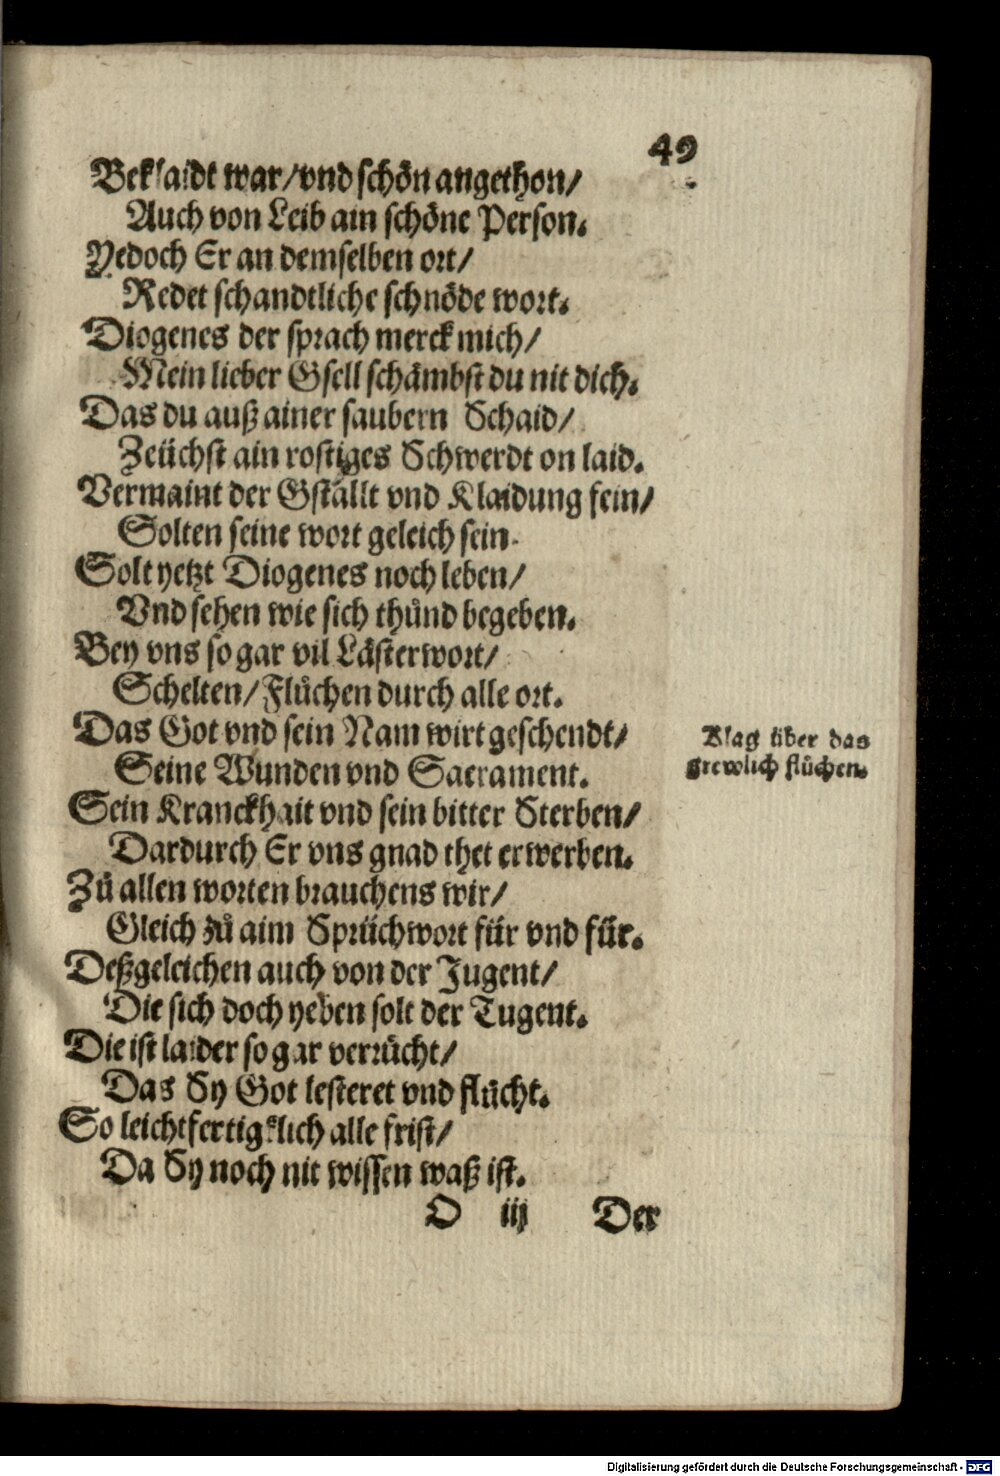 49
Beklaidt war/vnd schön angethon/
Auch von Leib ain schöne Person.
Yedoch Er an demselben ort/
Redet schandtliche schnöde wort.
Diogenes der sprach merck mich/
Mein lieber Gsell schämbst du nit dich.
Das du auß ainer saubern Schaid/
Zeüchst ain rostiges Schwerdt on laid.
Vermaint der Gställt vnd Klaidung fein/
Solten seine wort geleich sein.
Solt yetzt Diogenes noch leben/
Vnd sehen wie sich thůnd begeben.
Bey vns so gar vil Lästerwort/
Schelten/Flůchen durch alle ort.
Das Got vnd sein Nam wirt geschendt/
Klag über das
Seine Wunden vnd Sacrament.
grewlich flůchen.
Sein Kranckhait vnd sein bitter Sterben/
Dardurch Er vns gnad thet erwerben.
Zů allen worten brauchens wir/
Gleich zů aim Sprüchwort für vnd für.
Deßgeleichen auch von der Jugent/
Die sich doch yeben solt der Tugent.
Die ist laider so gar verrůcht/
Das Sy Got lesteret vnd flůcht.
So leichtfertigklich alle frist/
Da Sy noch nit wissen waß ist.
O iij Der
Digitalisierung gefördert durch die Deutsche Forschungsgemeinschaft - DFG